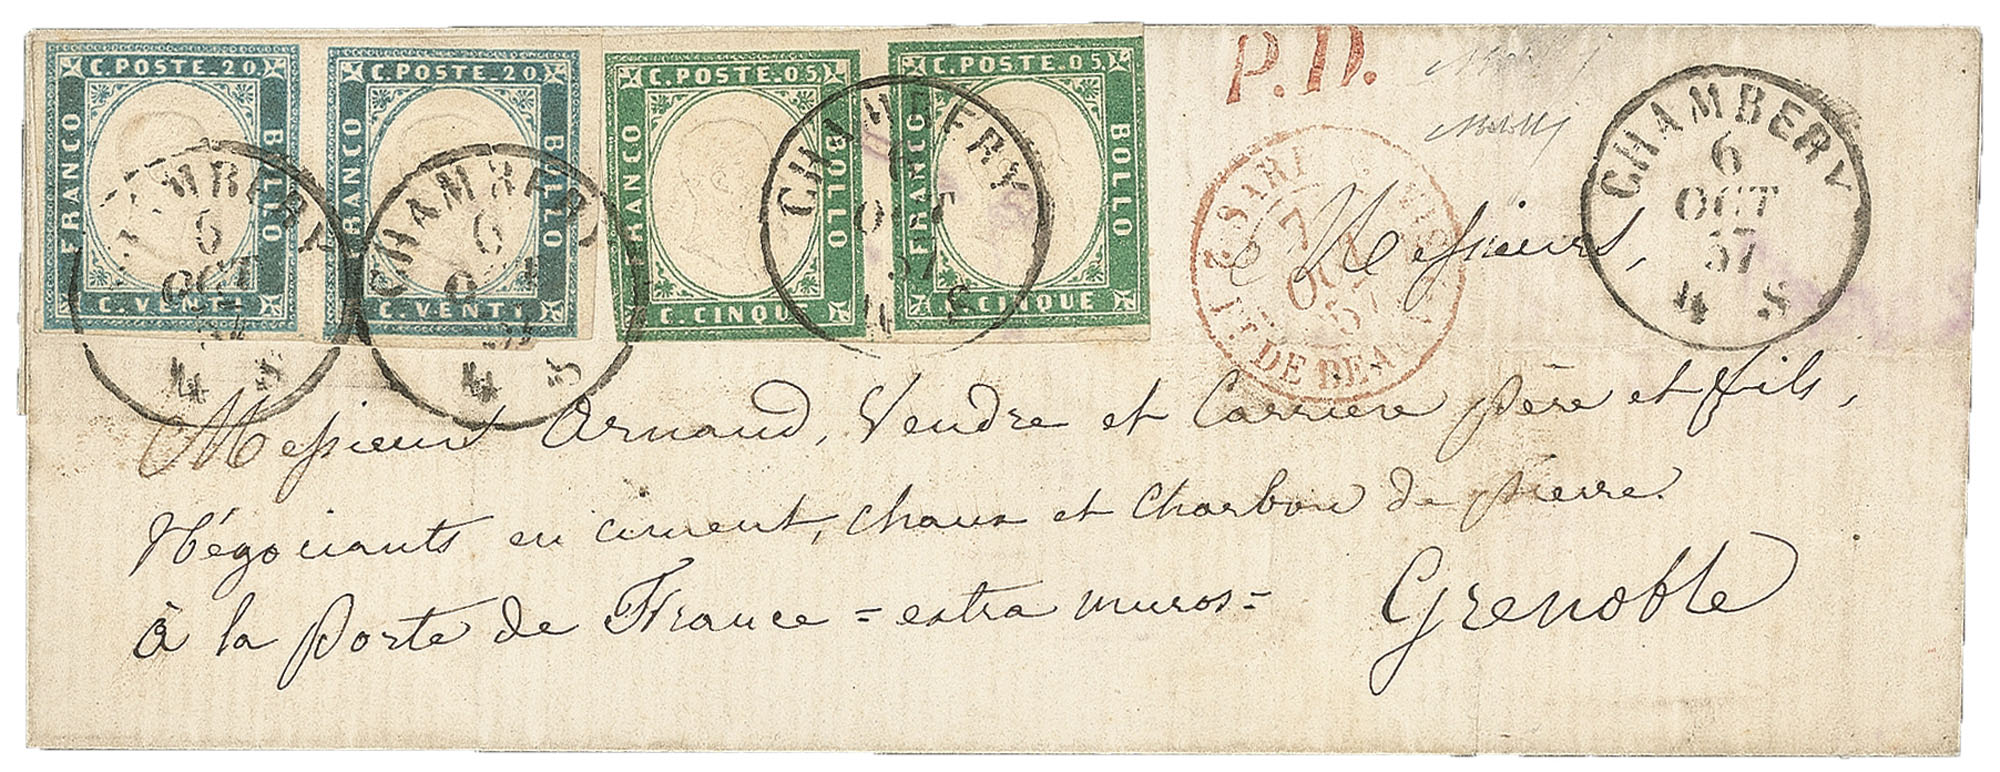 C. POSTE. 20
FRANCO
BOLLO
C. VENTI
C. POSTE. 20
FRANCO
BOLLO
C. VENTI
C. POSTE. 05
FRANCO
BOLLO
C. CINQUE
C. POSTE. 05
FRANCO
BOLLO
C. CINQUE
CHAMBERY
6
OCT
57
4 S
CHAMBERY
6
OCT
57
4 S
CHAMBERY
6
OCT
57
4 S
P.D.
7
OCT
57
DE BEA
CHAMBERY
6
OCT
57
4 S
Messieurs,
Messieurs Arnaud, Vendre et Carriere père et fils,
Négociants en ciment, chaux et Charbon de pierre.
à la porte de France = extra muros =
Grenoble